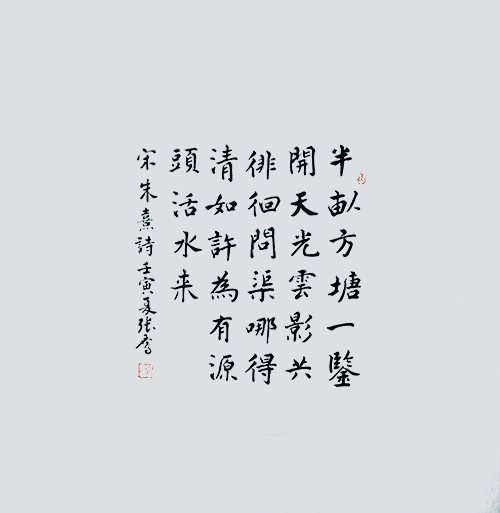 半畝方塘一鑒
開天光雲影共
徘徊問渠哪得
清如許為有源
頭活水来
宋朱熹詩壬寅夏張